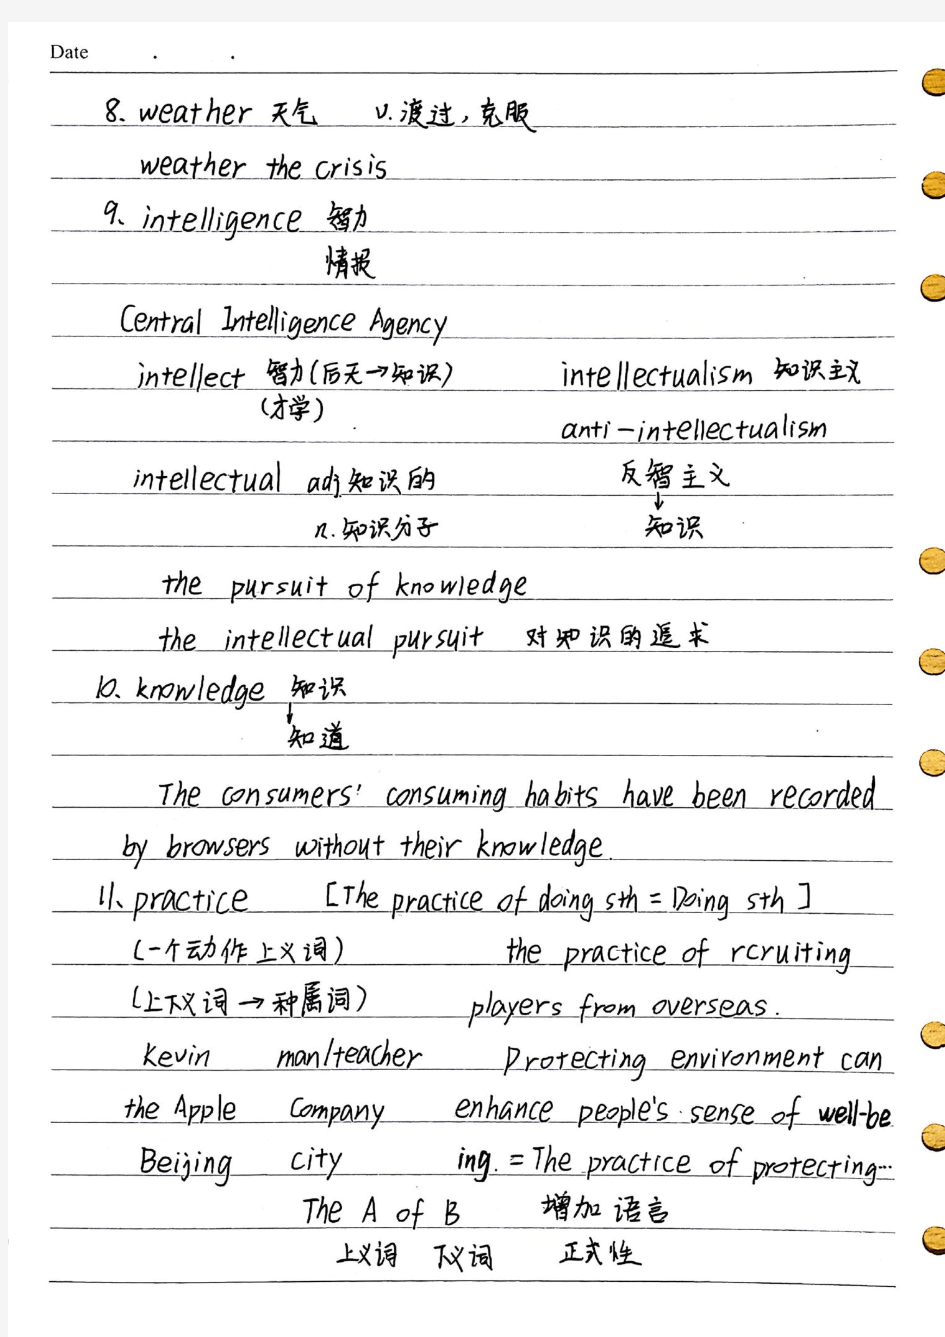 Date . .
8、weather 天气 v.渡过，克服
weather the crisis
9、intelligence 智力
情报
Central Intelligence Agency
intellect 智力(后天→知识) intellectualism 知识主义
(才学)
anti-intellectualism
intellectual adj 知识的 反智主义
↓
n.知识分子 知识
the pursuit of knowledge
the intellectual pursuit 对知识的追求
10、knowledge 知识
↓
知道
The consumers' consuming habits have been recorded
by browsers without their knowledge.
11、practice [The practice of doing sth = Doing sth]
(一个动作上义词) the practice of rcruiting
(上下义词→种属词) players from overseas.
Kevin man/teacher Protecting environment can
the Apple Company enhance people's sense of well-be
Beijing city ing. = The practice of protecting…
The A of B 增加语言
上义词 下义词 正式性